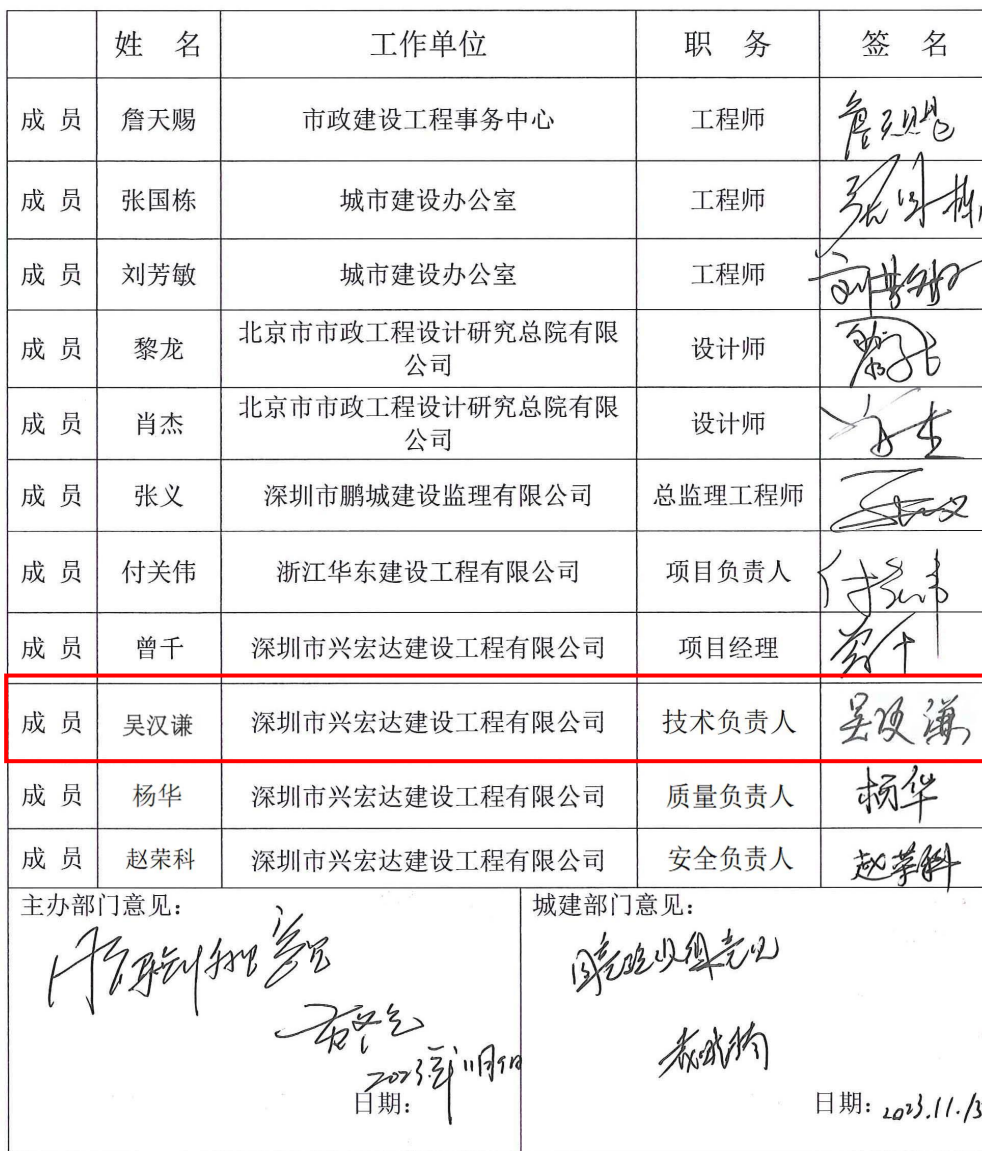 姓 名 工作单位 职 务 签 名
成 员 詹天赐 市政建设工程事务中心 工程师 詹天赐
成 员 张国栋 城市建设办公室 工程师 张国栋
成 员 刘芳敏 城市建设办公室 工程师 刘芳敏
成 员 黎龙 北京市市政工程设计研究总院有限
公司 设计师 黎龙
成 员 肖杰 北京市市政工程设计研究总院有限
公司 设计师 肖杰
成 员 张义 深圳市鹏城建设监理有限公司 总监理工程师
成 员 付关伟 浙江华东建设工程有限公司 项目负责人 付关伟
成 员 曾千 深圳市兴宏达建设工程有限公司 项目经理 曾千
成 员 吴汉谦 深圳市兴宏达建设工程有限公司 技术负责人 吴汉谦
成 员 杨华 深圳市兴宏达建设工程有限公司 质量负责人 杨华
成 员 赵荣科 深圳市兴宏达建设工程有限公司 安全负责人 赵荣科
主办部门意见：
2023年11月9日
日期：
城建部门意见：
同意验收组意见
日期：2023.11.13